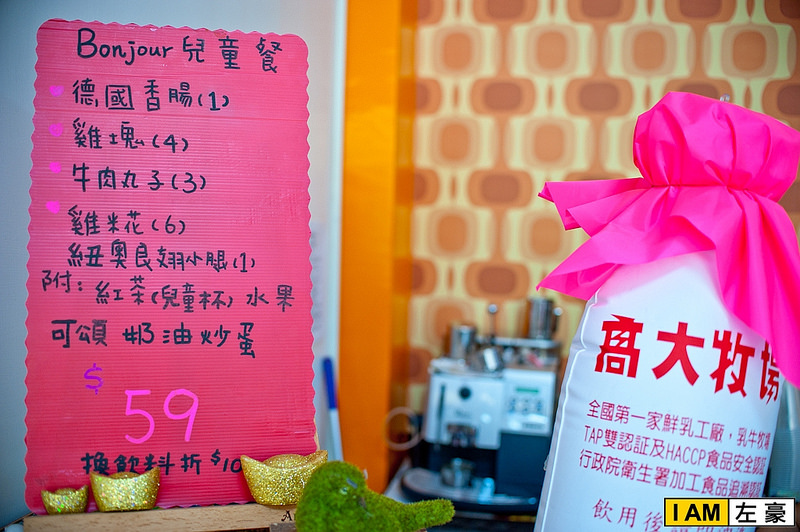 Bonjour 兒童餐
德國香腸(1)
雞塊(4)
牛肉丸子(3)
雞米花(6)
紐奧良翅小腿(1)
附: 紅茶(兒童杯) 水果
可頌 奶油炒蛋
$
59
換飲料折 $10
高大牧場
全國第一家鮮乳工廠，乳牛牧場
TAP雙認証及HACCP食品安全認証
行政院衛生署加工食品追溯認証
飲用後
I AM 左豪